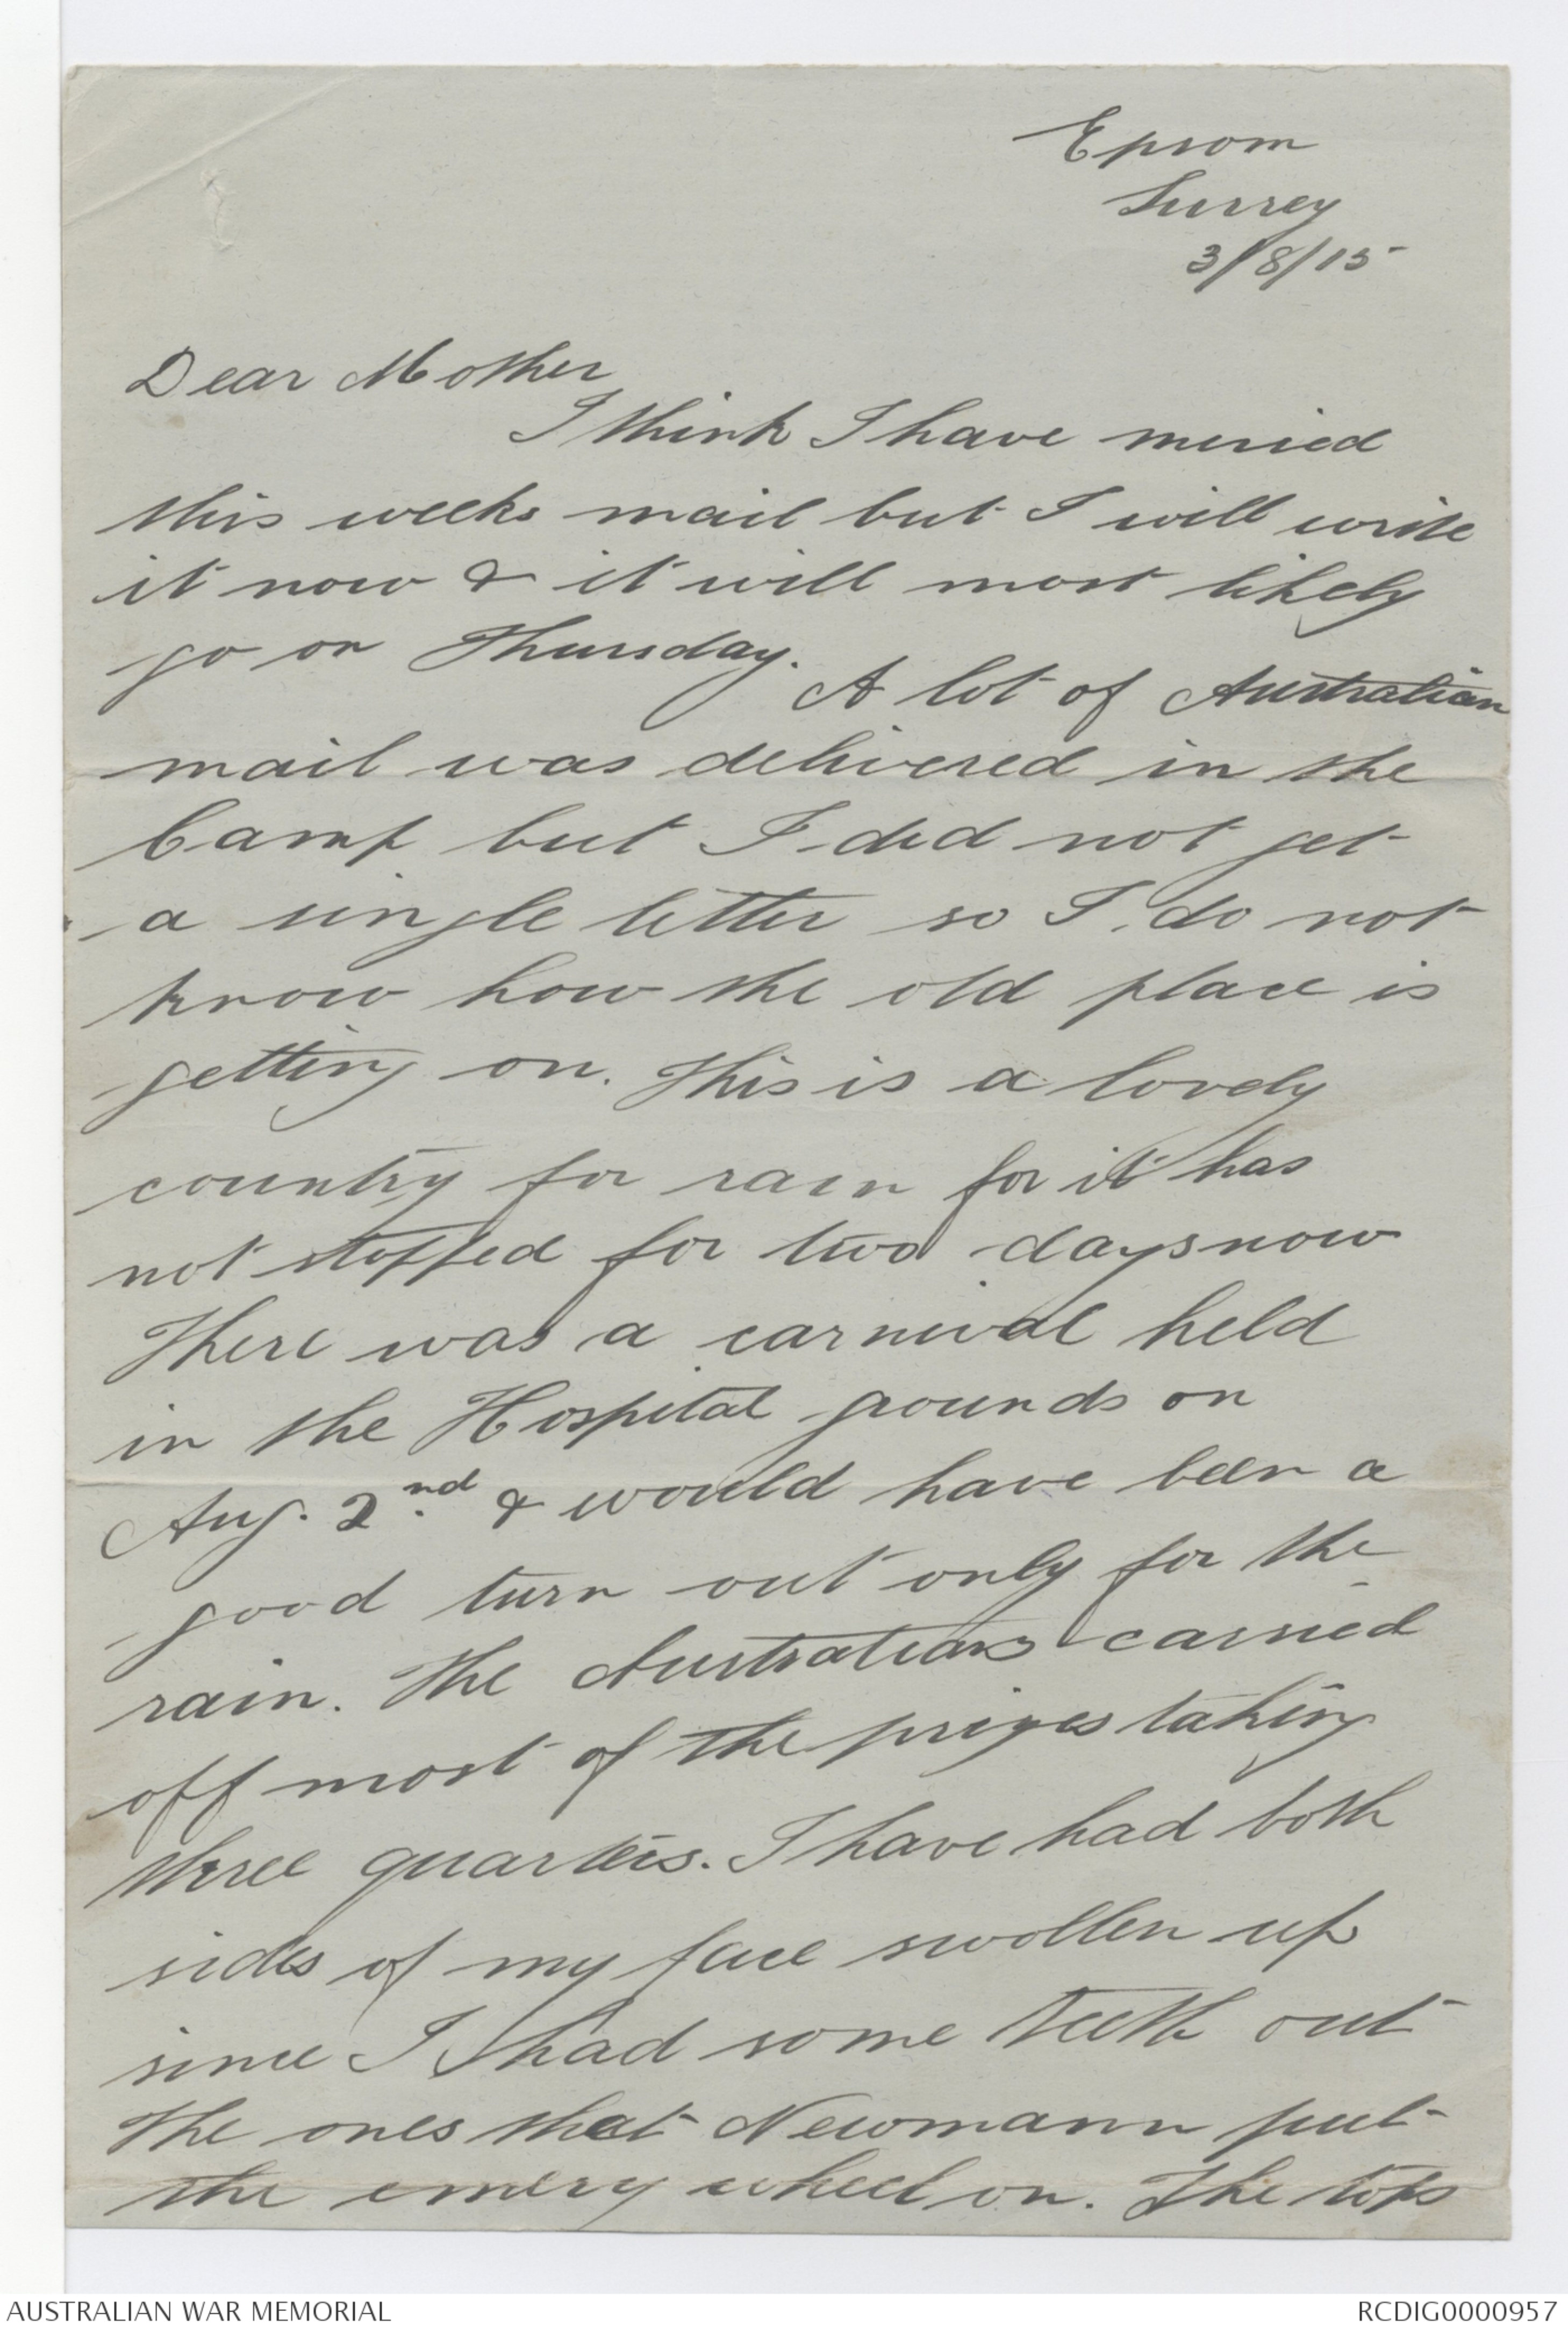 Epsom
Surrey
3/8/15
Dear Mother
I think I have missed
this weeks mail but I will write
it now & it will most likely
go on Thursday. A lot of Australian
mail was delivered in the
Camp but I did not get
a single letter so I do not
know how the old place is
getting on. This is a lovely
country for rain for it has
not stopped for two days now
There was a carnival held
in the Hospital grounds on
Aug. 2nd. & would have been a
good turn out only for the
rain. The Australians carried
off most of the prizes taking
three quarters. I have had both
sides of my face swollen up
since I had some teeth out
The ones that Newmann put
the emery wheel on. The tops
AUSTRALIAN WAR MEMORIAL
RCDIG0000957